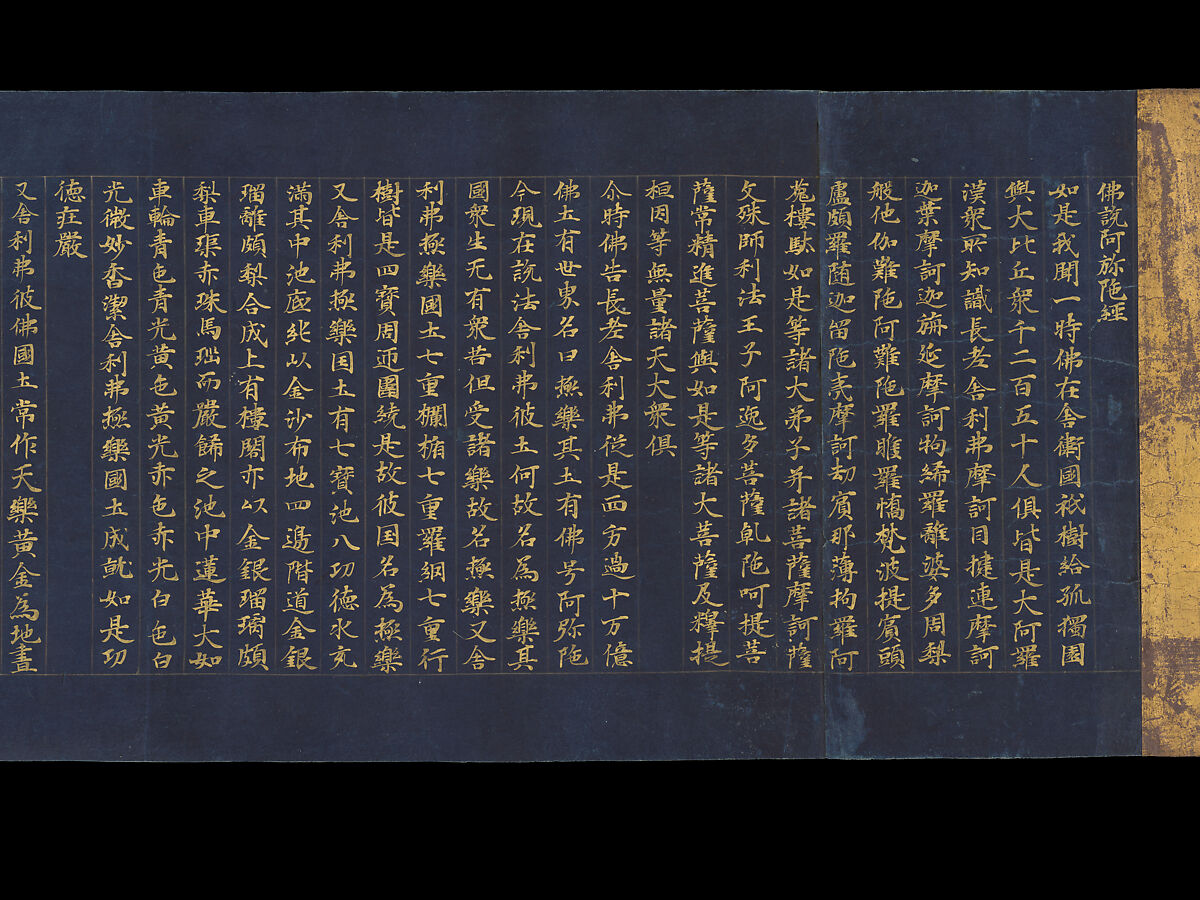 佛說阿弥陁經
如是我聞一時佛在舍衛國祇樹給孤獨園
與大比丘衆千二百五十人俱皆是大阿羅
漢衆所知識長老舍利弗摩訶目揵連摩訶
迦葉摩訶迦旃延摩訶拘絺羅離婆多周梨
般他伽難陁阿難陁羅睺羅憍梵波提賓頭
盧頗羅随迦留陁夷摩訶劫賓那薄拘羅阿
㝹樓馱如是等諸大弟子并諸菩薩摩訶薩
文殊師利法王子阿逸多菩薩乹陁呵提菩
薩常精進菩薩與如是等諸大菩薩及釋提
桓因等無量諸天大衆俱
尒時佛告長老舍利弗從是西方過十万億
佛土有世界名曰極樂其土有佛号阿弥陁
今現在說法舍利弗彼土何故名為極樂其
國衆生无有衆苦但受諸樂故名極樂又舍
利弗極樂國土七重欄楯七重羅網七重行
樹皆是四寶周迊圍繞是故彼国名為極樂
又舍利弗極樂国土有七寶池八功德水充
滿其中池底純以金沙布地四邊階道金銀
瑠離頗梨合成上有樓閣亦以金銀瑠璃頗
梨車璖赤珠馬瑙而嚴飾之池中蓮華大如
車輪青色青光黄色黄光赤色赤光白色白
光微妙香潔舍利弗極樂國土成就如是功
德庄嚴
又舍利弗彼佛國土常作天樂黄金為地晝